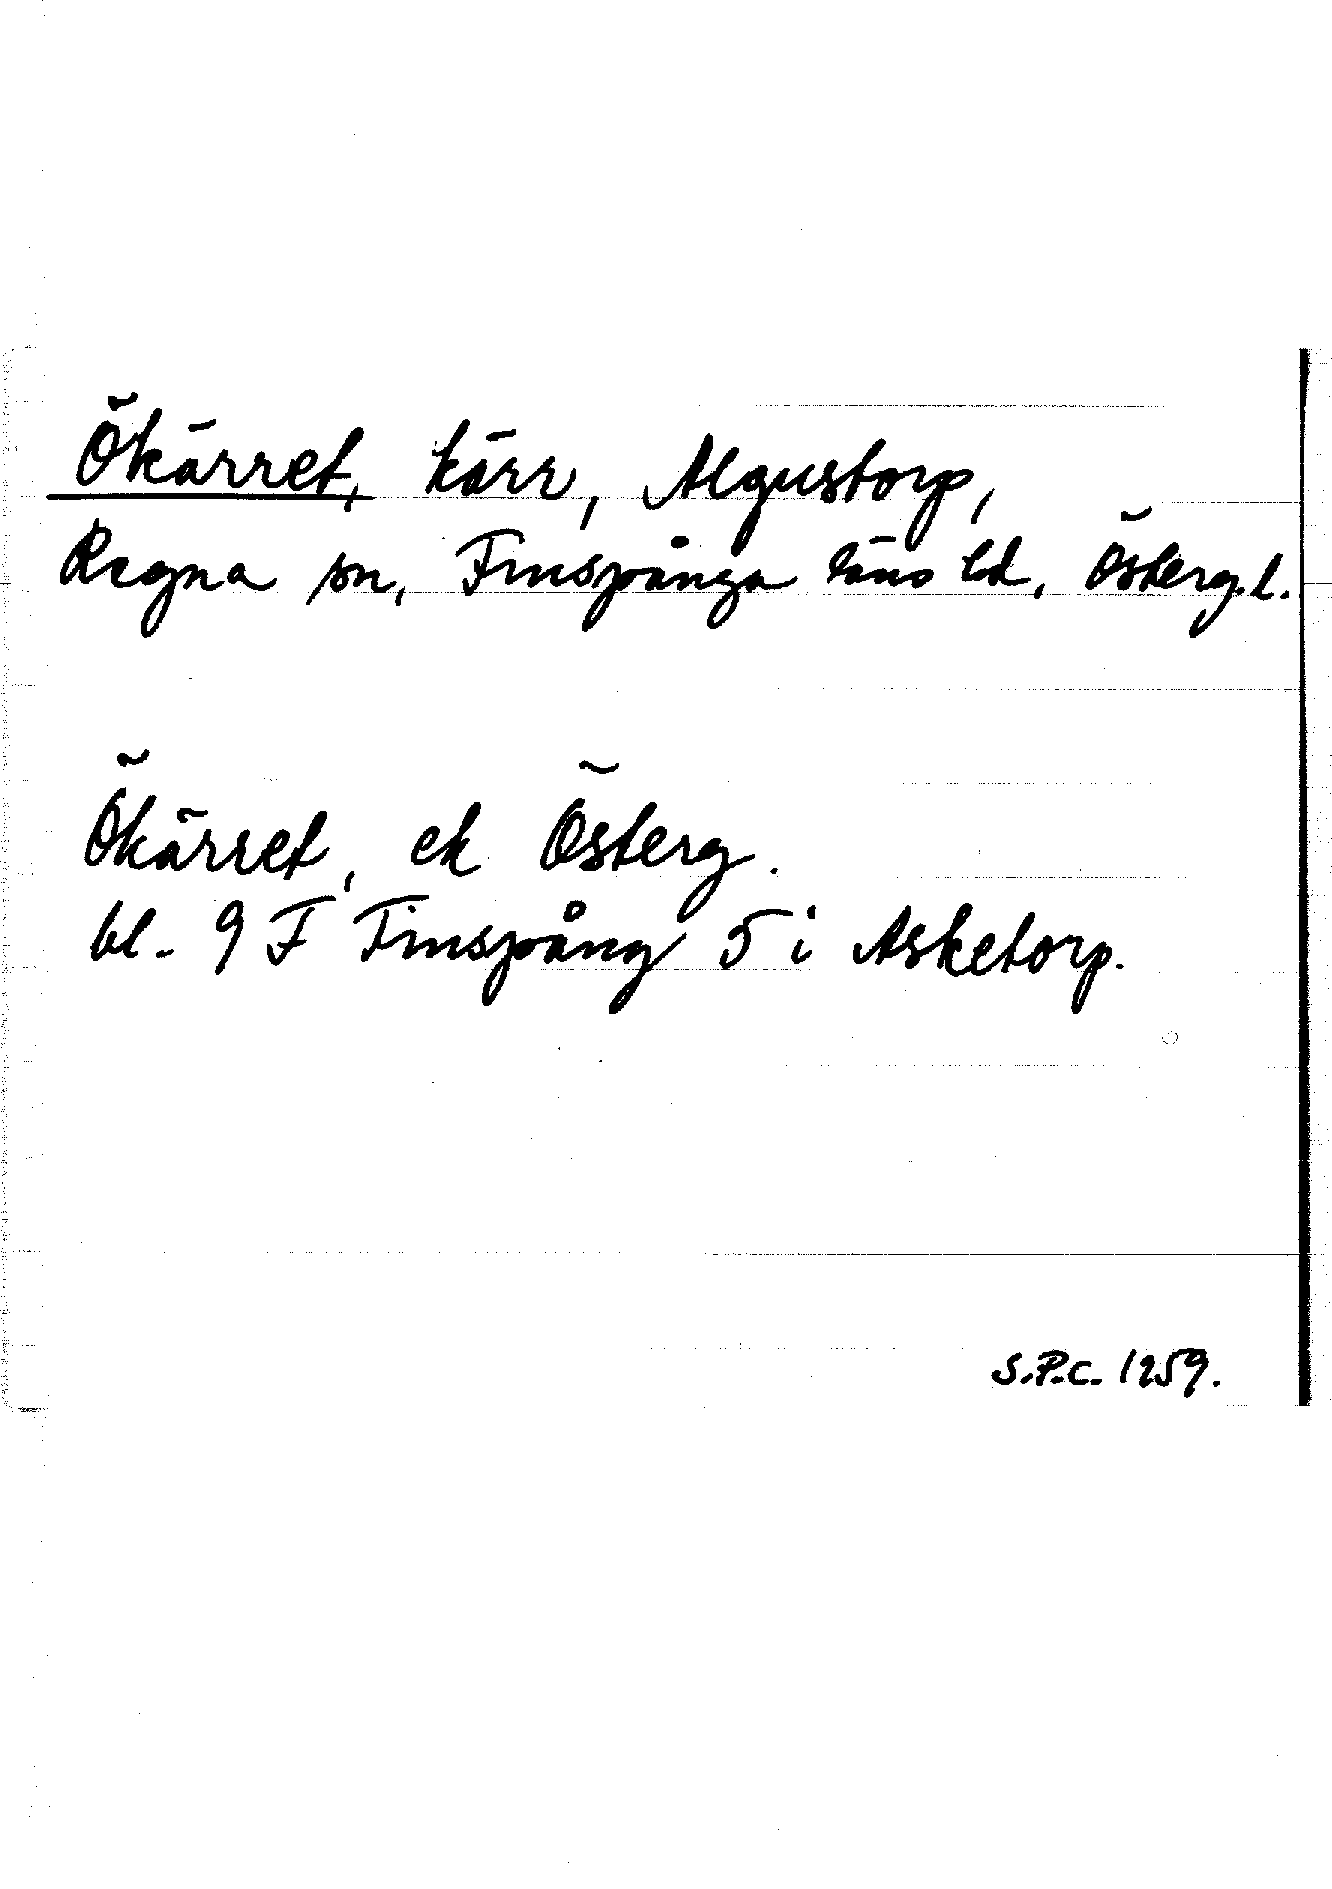 Ökärret, kärr, Algustorp,
Regna sn, Finspånga läns hd, Österg.l.
Ökärret, ek Österg.
bl. 9 F Finspång 5 i Asketorp.
S.P.C. 1959.